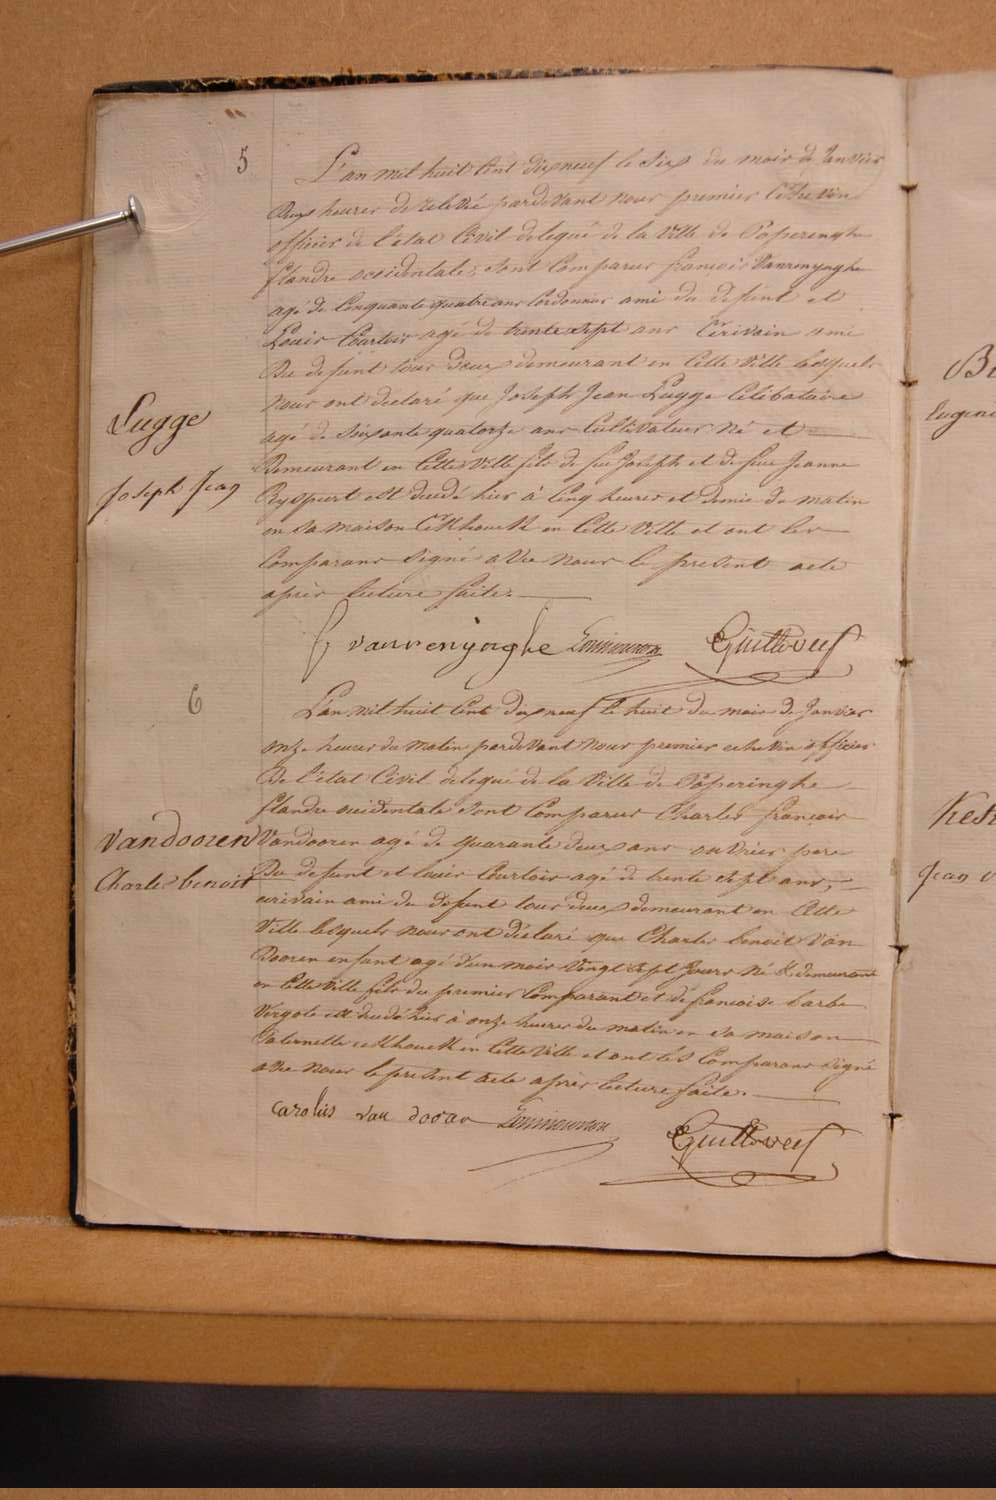 5
L'an mil huit Cent dix neuf le Six du mois de Janvier
Deux heures de relevée pardevant nous premier Echevin
officier de l'état Civil delegué de la Ville de Poperinghe
flandre occidentale; sont Comparus francois Vanrenynghe
agé de Cinquante quatre ans Cordonnier ami du defunt et
Louis Courtois agé de trente sept ans Ecrivain ami
Du defunt tous deux demeurant en Cette Ville lesquels
nous ont declaré que Joseph Jean Lugge Celibataire
agé de Soixante quatorze ans Cultivateur Né et
Demeurant en Cette Ville fils de feu Joseph et de feue Jeanne
est decedé hier à Cinq heures et demie du matin
en sa maison en Cette Ville et ont les
Comparans Signé avec nous le present acte
après lecture faite.
Lugge
Joseph Jean
f, vanrenynghe
6
L'an mil huit Cent dix neuf le huit du mois de Janvier
onze heures du matin pardevant nous premier echevin officier
De l'état Civil delegué de la Ville de Poperinghe
flandre occidentale sont Comparus Charles francois
Vandooren agé de quarante deux ans ouvrier pere
Du defunt et louis Courtois agé de trente sept ans,
ecrivain ami du defunt tous deux demeurant en Cette
Ville lesquels nous ont déclaré que Charles benoit Van
Dooren enfant agé d'un mois Vingt sept Jours né & demeurant
en Cette Ville fils du premier Comparant et de francoise barbe
Vergote est decedé hier à onze heures du matin en sa maison
Paternelle en Cette Ville et ont les Comparans signé
avec nous le present acte après lecture faite.
Vandooren
Charles benoit
Carolus van dooren
Eugene
Jean